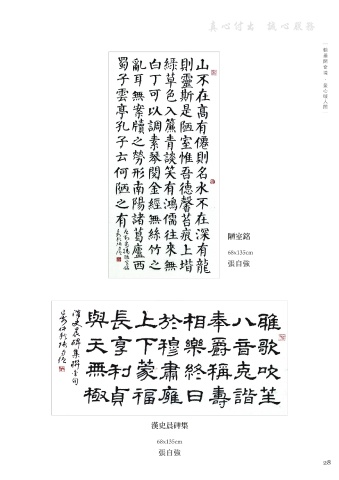 真心付出 誠心服務
山不在高有僊則名水不在深有龍
則靈斯是陋室惟吾德馨苔痕上堦
綠草色入簾青談笑有鴻儒往來無
白丁可以調素琴閱金經無絲竹之
亂耳無案牘之勞形南陽諸葛廬西
蜀子雲亭孔子云何陋之有
陋室銘
68x135cm
張自強
雅歌吹笙
八音克諧
奉爵稱壽
相樂終日
於穆肅雍
上下蒙福
長享利貞
與天無極
漢史晨碑集
漢史晨碑集
68x135cm
張自強
28